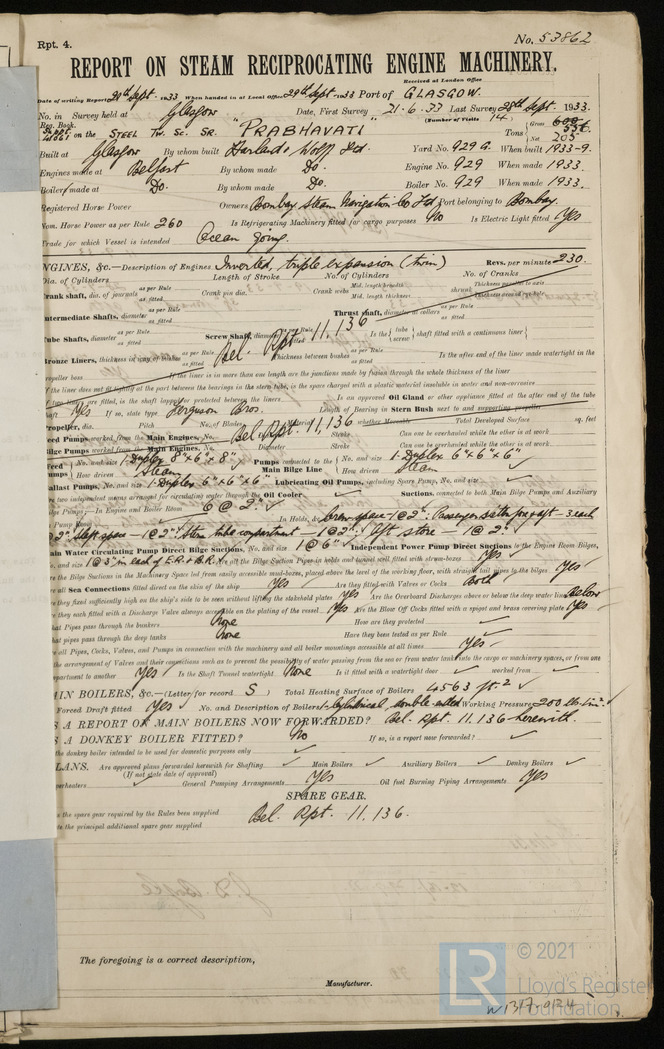 Rpt. 4.
No. 53862
REPORT ON STEAM RECIPROCATING ENGINE MACHINERY.
Received at London Office
Date of writing Report 29th Sept. 1933 When handed in at Local Office 29th Sept. 1933 Port of GLASGOW.
No. in Survey held at Glasgow Date, First Survey 21-6-33 Last Survey 28th Sept. 1933.
Reg. Book. (Number of Visits 14.)
on the STEEL TW. SC. SR. "PRABHAVATI Tons Gross 556. Net 205
Built at Glasgow By whom built Harland & Wolff Ltd. Yard No. 929 G. When built 1933-9.
Engines made at Belfast By whom made Do. Engine No. 929 When made 1933.
Boilers made at Do. By whom made Do. Boiler No. 929 When made 1933.
Registered Horse Power Owners Bombay Steam Navigation Co Ltd Port belonging to Bombay.
Nom. Horse Power as per Rule 260 Is Refrigerating Machinery fitted for cargo purposes No Is Electric Light fitted Yes
Trade for which Vessel is intended Ocean going.
NGINES, &c.—Description of Engines Inverted, triple expansion (twin) Revs. per minute 230.
Dia. of Cylinders Length of Stroke No. of Cylinders No. of Cranks
Crank shaft, dia. of journals as per Rule as fitted Crank pin dia. Crank webs Mid. length breadth Mid. length thickness shrunk Thickness parallel to axis Thickness around eye
Intermediate Shafts, diameter as per Rule as fitted Thrust shaft, diameter at collars as per Rule as fitted
Tube Shafts, diameter as per Rule as fitted Screw Shaft, diameter as per Rule as fitted Is the { tube screw } shaft fitted with a continuous liner {
Bel. Rpt 11,136
Bronze Liners, thickness in way of bushes as per Rule as fitted Thickness between bushes as per Rule as fitted Is the after end of the liner made watertight in the
propeller boss If the liner is in more than one length are the junctions made by fusion through the whole thickness of the liner
If the liner does not fit tightly at the part between the bearings in the stern tube, is the space charged with a plastic material insoluble in water and non-corrosive
If two liners are fitted, is the shaft lapped or protected between the liners Is an approved Oil Gland or other appliance fitted at the after end of the tube
shaft Yes If so, state type Ferguson Bros. Length of Bearing in Stern Bush next to and supporting propeller
Propeller, dia. Pitch No. of Blades Material whether Moveable Total Developed Surface sq. feet
Bel. Rpt. 11,136
Feed Pumps worked from the Main Engines, No. Diameter Stroke Can one be overhauled while the other is at work
Bilge Pumps worked from the Main Engines, No. Diameter Stroke Can one be overhauled while the other is at work
Feed Pumps { No. and size 1 Duplex 8"x6"x8" How driven Steam } Pumps connected to the Main Bilge Line { No. and size 1 Duplex 6"x6"x6" How driven Steam
Ballast Pumps, No. and size 1-Duplex 6"x6"x6" Lubricating Oil Pumps, including Spare Pump, No. and size
re two independent means arranged for circulating water through the Oil Cooler Suctions, connected to both Main Bilge Pumps and Auxiliary
ge Pumps;—In Engine and Boiler Room 6 @ 2"
Pump Room In Holds, &c.
@ 2". 1 @ 2". Stern tube compartment—1 @ 2". Aft store—1 @ 2".
ain Water Circulating Pump Direct Bilge Suctions, No. and size 1 @ 6" Independent Power Pump Direct Suctions to the Engine Room Bilges,
o. and size 1 @ 3" in each of E.R. & B.R. Are all the Bilge Suction Pipes in holds and tunnel well fitted with strum-boxes Yes
re the Bilge Suctions in the Machinery Space led from easily accessible mud-boxes, placed above the level of the working floor, with straight tail pipes to the bilges Yes
re all Sea Connections fitted direct on the skin of the ship Yes Are they fitted with Valves or Cocks Both
re they fixed sufficiently high on the ship's side to be seen without lifting the stokehold plates Yes Are the Overboard Discharges above or below the deep water line Below
re they each fitted with a Discharge Valve always accessible on the plating of the vessel Yes Are the Blow Off Cocks fitted with a spigot and brass covering plate Yes
hat Pipes pass through the bunkers None How are they protected
hat pipes pass through the deep tanks None Have they been tested as per Rule
re all Pipes, Cocks, Valves, and Pumps in connection with the machinery and all boiler mountings accessible at all times Yes
the arrangement of Valves and their connections such as to prevent the possibility of water passing from the sea or from water tanks into the cargo or machinery spaces, or from one
partment to another Yes Is the Shaft Tunnel watertight None Is it fitted with a watertight door worked from
AIN BOILERS, &c.—(Letter for record S) Total Heating Surface of Boilers 4563 ft.²
Forced Draft fitted Yes No. and Description of Boilers 1 Cylindrical, double ended Working Pressure 200 lb. in²
S A REPORT ON MAIN BOILERS NOW FORWARDED? Bel. Rpt. 11,136 herewith.
S A DONKEY BOILER FITTED? No If so, is a report now forwarded?
the donkey boiler intended to be used for domestic purposes only
LANS. Are approved plans forwarded herewith for Shafting Main Boilers Auxiliary Boilers Donkey Boilers
(If not state date of approval)
perheaters General Pumping Arrangements Yes Oil fuel Burning Piping Arrangements Yes
SPARE GEAR.
s the spare gear required by the Rules been supplied Bel. Rpt. 11,136.
te the principal additional spare gear supplied
The foregoing is a correct description,
Manufacturer.
LR © 2021
Lloyd's Register
Foundation
W1317-0124